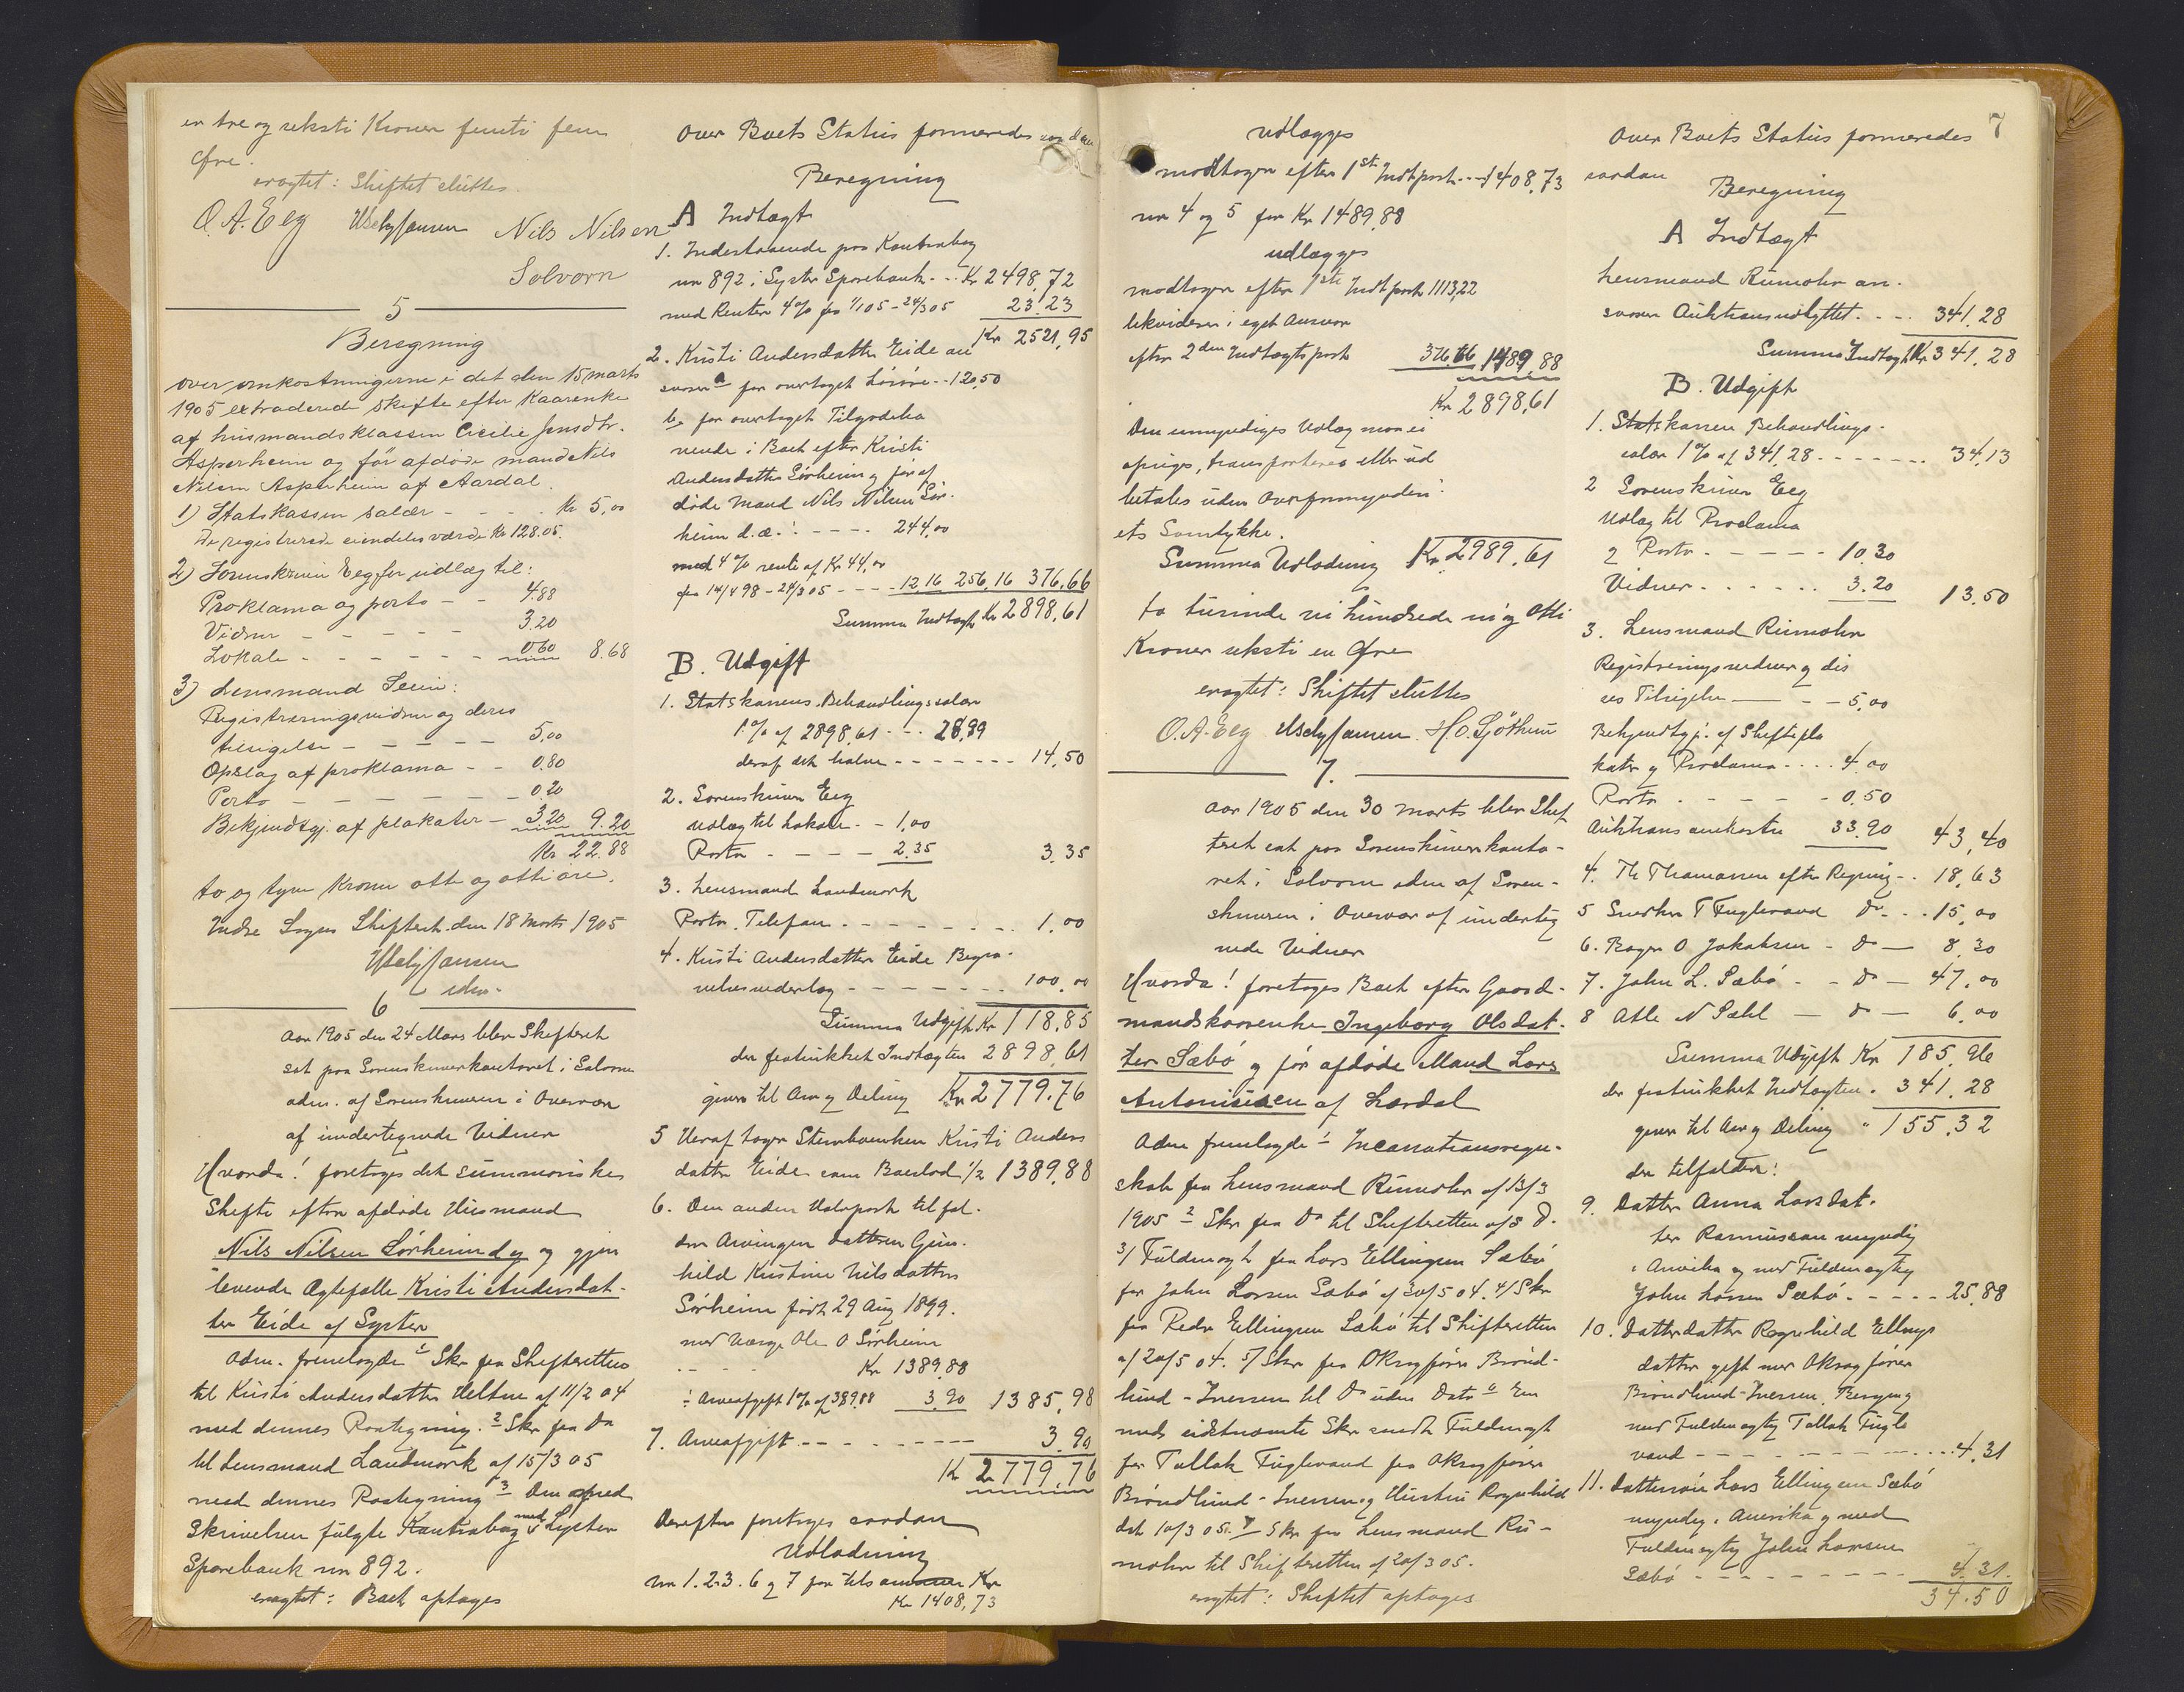 en tre og seksti Kroner femti fem
Øre.
eragtet: Skiftet sluttes.
O. A. Eeg Nils Nilsen
Solvorn
5
Beregning
over omkostningerne i det den 15 marts
1905 extraderede skifte efter Kaarenke
af husmandsklassen Cicilie Jensdtr.
Asperheim og før afdøde mand Nils
Nilsen Asperheim af Aardal.
1) Statskassen salær - - - - Kr 5,00
De registrerede eiendeles værdi Kr 128.05.
2) Sorenskriver Eeg for udlæg til:
Proklama og porto - - 4.88
Vidner - - - - - 3.20
Lokale - - - - - - 0.60 8.68
3) Lensmand Seim:
Registreringsvidner og deres
tilsigelse - - - - - 5,00
Opslag af proklama - - 0.80
Porto - - - - - - 0.20
Bekjendtgj. af plakater - 3.20 9.20
Kr 22.88
to og tyve Kroner otte og otti øre.
Indre Sogns Skifteret den 18 Marts 1905
6
Aar 1905 den 24 Mars blev Skifteret
sat paa Sorenskriverkontoret i Solvorn
adm. af Sorenskriveren i Overvær
af undertegnede Vidner
Hvorda! foretoges det summariske
Skifte efter afdøde Husmand
Nils Nilsen Sørheim d.y. og gjen
levende Ægtefælle Kristi Andersdat-
ter Eide af Lyster
Adm. fremlagde 1 Skr fra Skifteretten
til Kristi Andersdatter Heltne af 11/2 04
med dennes Paategning. 2 Skr fra Do
til Lensmand Landmark af 15/3 05
med dennes Paategning 3 Den med
Skrivelsen fulgte Kontrabog med Lyster
Sparebank nr 892.
eragtet: Boet optages
Over Boets Status formeredes saadan
Beregning
A Indtægt
1. Indestaaende paa Kontrabog
nr 892 i Lyster Sparebank - - Kr 2498,72
med Renter 4% fra 1/1 05 - 24/3 05 23.23
Kr 2521,95
2. Kristi Andersdatter Eide an
svarer a for overtaget Løsøre - - 120,50
b. for overtaget Tilgodeha
vende i Boet efter Kristi
Andersdatter Sørheim og før af
døde Mand Nils Nilsen Sør-
heim d.æ.: - - - - 244,00
med 4% rente af Kr 44,00
fra 14/4 98 - 24/3 05 - - - - 12.16 256,16 376,66
Summa Indtægt Kr 2898,61
B. Udgift
1. Statskassens Behandlingssalær
1% af 2898,61 - - 28,99
deraf det halve - - - - - - - 14,50
2. Sorenskriver Eeg
Udlæg til Lokale - - 1,00
Porto - - - - 2.35 3.35
3. Lensmand Landmark
Porto. Telefon - - - - - - - - 1.00
4. Kristi Andersdatter Eide Begra-
velsesvederlag - - - - - - - 100.00
Summa Udgift Kr 118.85
der fratrukket Indtægten 2898,61
giver til Arv og Deling Kr 2779.76
5 Heraf tager Stervboenken Kristi Anders
datter Eide som Boeslod 1/2 1389,88
6. Den anden Halvpart tilfal-
der Arvingen Datteren Gun-
hild Kristine Nilsdatter
Sørheim født 29 Aug 1899.
med Værge Ole O Sørheim
Kr 1389.88
÷ Arveafgift 1% af 389.88 3.90 1385,98
7. Arveafgift - - - - - - - - - 3.90
Kr 2779,76
Derefter foretoges saadan
Udlodning
nr 1.2.3.6 og 7 for tilsammen Kr
Kr 1408,73
udlægges
modtager efter 1st Indtpost - - - 1408,73
nr 4 og 5 for Kr 1489,88
udlægges
modtagen efter 1ste Indt post 1113,22
likviderer i eget Ansvar
efter 2den Indtægtspost 376.66 1489,88
Kr 2898,61
Den umyndiges Udlæg maa ei
opsiges, transporteres eller ud
betales uden Overformynderi-
ets Samtykke.
Summa Udlodning Kr 2989,61
to tusinde ni hundrede ni og Otti
Kroner seksti en Øre
eragtet: Skiftet sluttes
O. A. Eeg
7.
Aar 1905 den 30 Marts blev Skif
teret sat paa Sorenskriverkonto-
ret i Solvorn adm af Soren-
skriveren i Overvær af underteg
nede Vidner
Hvorda! foretoges Boet efter Gaard-
mandskaarenke Ingeborg Olsdat-
ter Sæbø og før afdøde Mand Lars
Antonisen af Lærdal
Adm fremlagde 1 Incassationsregn-
skab fra Lensmand Rumohr af 13/3
1905 2 Skr fra Do til Skifteretten af s D.
3/ Fuldmagt fra Lars Ellingsen Sæbø
for John Larsen Sæbø af 30/5 04. 4/ Skr
fra Peder Ellingsen Sæbø til Skifteretten
af 20/5 04. 5/ Skr fra OKragfører Brønd-
lund - Iversen til Do uden Dato 6 En
med sidstnævnte Skr sendt Fuldmagt
for Tollak Fuglevand fra OKragfører
Brøndlund - Iversen og Hustru Ragnhild
dat 10/3 05. 7 Skr fra Lensmand Ru-
mohr til Skifteretten af 20/3 05.
eragtet: Skiftet optoges
7
Over Boets Status formeredes
saadan
Beregning
A Indtægt
Lensmand Rumohr an-
svarer Auktionsudbyttet - - - - 341,28
Summa Indtægt Kr. 341,28
B. Udgift
1. Statskassen Behandlings-
salær 1% af 341,28 - - - - - - - 34,13
2 Sorenskriver Eeg
Udlæg til Proclama
2 Porto - - - - - - 10.30
Vidner - - - - - - 3.20 13.50
3. Lensmand Rumohr
Registreringsvidner og dis
ses Tilsigelse - - - 5,00
Bekjendtgj. af Skiftepla
kater og Proclama - - - - 4.00
Porto - - - - - - 0.50
Auktions omkostn 33.90 43,40
4. Th Thomassen efter Regning - - 18,63
5 Snedker T Fuglevand Do - - - 15,00
6. Bager O Jakobsen - Do - 8.30
7. John L. Sæbø - - Do - 47,00
8 Atle N Sæhl - Do - 6.00
Summa Udgift Kr 185,96
der fratrukket Indtægten - 341.28
giver til Arv og Deling " 155.32
der tilfalder:
9. Datter Anna Larsdat-
ter Rasmussen myndig
i Amerika og med Fuldmægtig
John Larsen Sæbø - - - - - 25,88
10. Datterdatter Ragnhild Ellings
datter gift med OKragfører
Brøndlund-Iversen, Bergen og
med Fuldmægtig Tollak Fugle
vand - - - - - - - - - 4.31
11. Dattersøn Lars Ellingsen Sæbø
myndig i Amerika og med
Fuldmægtig John Larsen
Sæbø - - - - - - - - - 4.31.
34.50